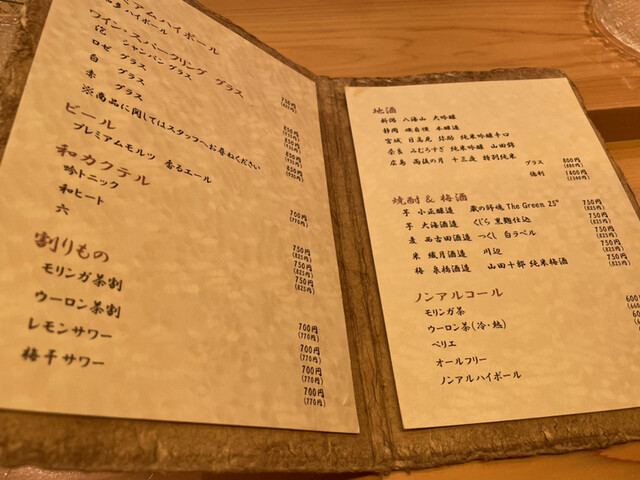 ミアムハイボール
ハイボール
ワイン・スパークリング グラス
泡 シャンパングラス
ロゼ グラス
白 グラス
赤 グラス
※商品に関してはスタッフへお尋ねください
750円
(825円)
850円
850円
850円
850円
(935円)
ビール
プレミアムモルツ 香るエール
700円
(770円)
和カクテル
吟トニック
和ヒート
六
750円
(825円)
750円
(825円)
750円
(825円)
割りもの
モリンガ茶割
ウーロン茶割
レモンサワー
梅干サワー
700円
(770円)
700円
(770円)
700円
(770円)
700円
(770円)
地酒
新潟 八海山 大吟醸
静岡 磯自慢 本醸造
宮城 日高見 弥助 純米吟醸辛口
奈良 みむろすぎ 純米吟醸 山田錦
広島 雨後の月 十三夜 特別純米
グラス 800円
(880円)
徳利 1400円
(1540円)
焼酎 & 梅酒
芋 小正醸造 蔵の師魂 The Green 25° 750円
(825円)
芋 大海酒造 くじら 黒麹仕込 750円
(825円)
麦 西吉田酒造 つくし 白ラベル 750円
(825円)
米 繊月酒造 川辺 750円
(825円)
梅 泉橋酒造 山田十郎 純米梅酒 750円
(825円)
ノンアルコール
モリンガ茶 600
ウーロン茶(冷・熱)
ペリエ
オールフリー
ノンアルハイボール